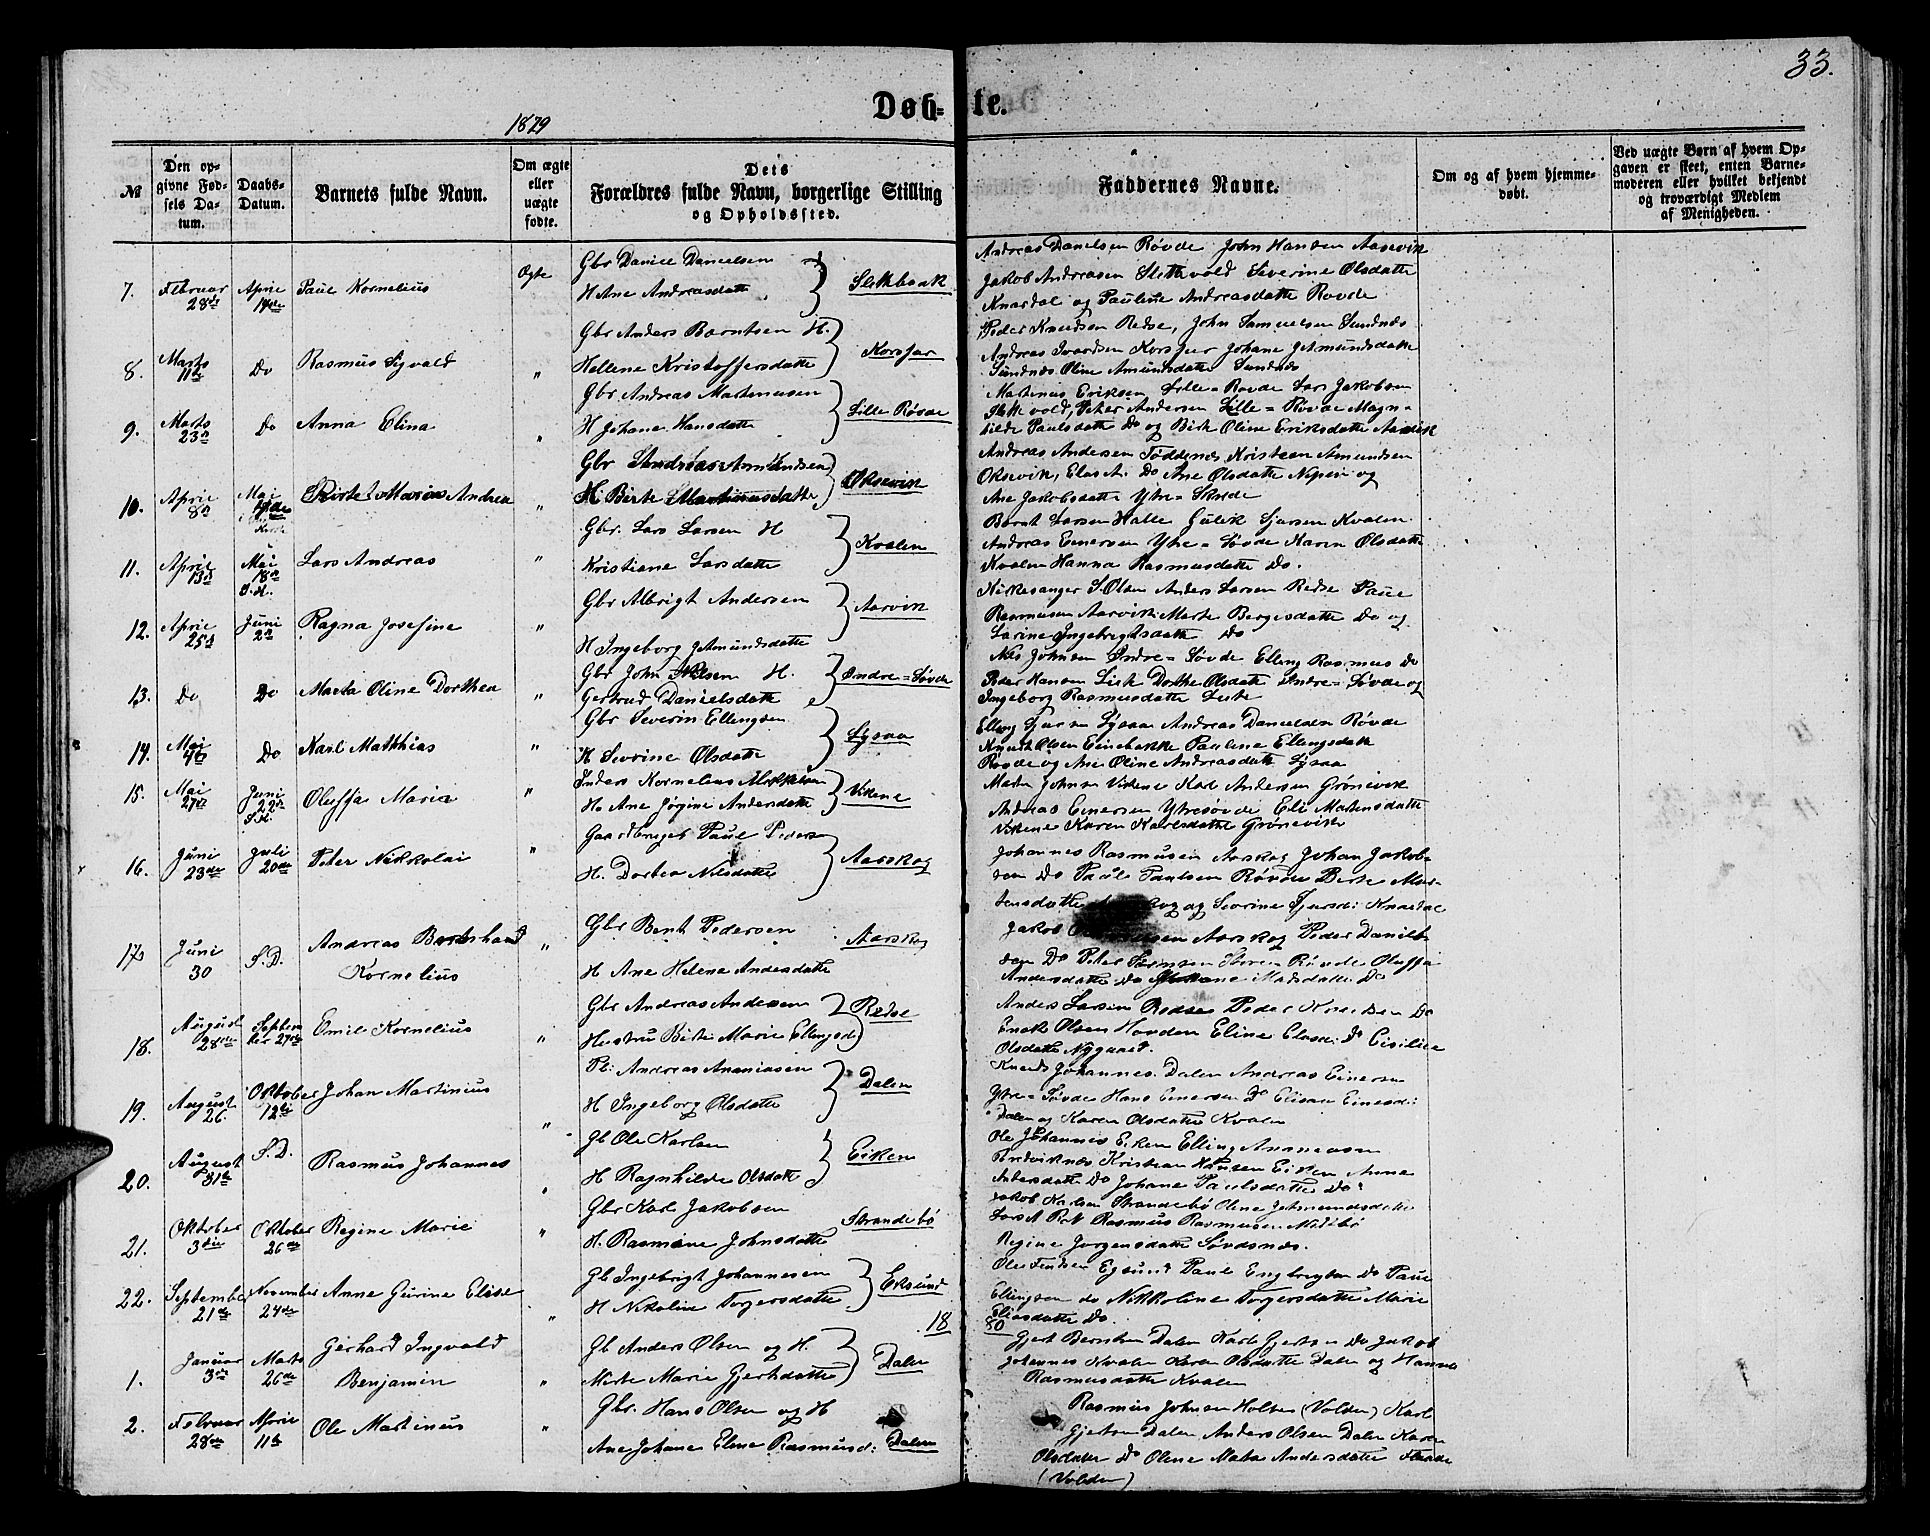 33.
Døb-te.
1879
№
Den op-
givne Fød-
sels Da-
tum.
Daabs-
Datum.
Barnets fulde Navn.
Om ægte
eller
uægte
fødte.
Dets
Forældres fulde Navn, borgerlige Stilling
og Opholdssted.
Faddernes Navne.
Om og af hvem hjemme-
døbt.
Ved uægte Børn af hvem Op-
gaven er skeet, enten Barne-
moderen eller hvilket bekjendt
og troværdigt Medlem
af Menigheden.
7. Februar 28de April 14de Paul Kornelius Ægte
Gbr Daniel Danielsen
H Ane Andreasdatte Slethbaak
Andreas Danielsen Røvde John Hansen Aasevik
Jakob Andreasen Slettevold Severine Olsdatte
Knardal og Pauline Andreasdatte Rovde
8. Marts 11te Do Rasmus Sigvald "
Gbr Anders Barntsen H.
Hellene Kristoffersdatte Korsfur
Peder Knudsen Redse, John Samuelsen Sundnæs
Andreas Ivardsen Korsfur Johane J. Amundsdatte
Sundnæs Oline Amundsdatte Sundnæs
9. Marts 23de Do Anna Elina "
Gbr Andreas Martinusen
H Johane Hansdatte Lille Røvde
Martinus Eriksen Lille=Rovde Lars Jakobsen
Peter Andersen Lille=Røvde Magn=
hilde Paulsdatte Do og Birte Oline Eriksdatte Aasevik
10. April 8de Mai Birte Marias Andrea "
Gbr Andreas Amundsen
H Birte Martinusdatte Oksevik
Andreas Andersen Tøddenæs Kristian Amundsen
Oksevik, Elas A. Do Ane Olsdatte Nipen og
Ane Jakobsdatte Ytre=Skrede
11. April 13de Mai 18de S.K. Lars Andreas "
Gbr. Lars Larsen H
Kristiane Larsdatte Kvalen
Bernt Larsen Halle Gulik Sjursen Kvalen
Andreas Einersen Ytre=Søvde Karen Olsdatte
Kvalen Hanna Rasmusdatte Do.
12. April 25de Juni 2de Ragna Josefine "
Gbr Albrigt Andersen
H Ingeborg J. Amundsdatte Aarvik
Kirkesanger S. Olsen Anders Larsen Redse Paul
Rasmusen Aarvik Marte Bergesdatte Do og
Larine Ingebrigtsdatte Do
13. Do Do Marta Oline Dorthea "
Gbr John Nilsen H.
Gertrud Danielsdatte Indre=Søvde
Nils Johnsen Indre=Søvde Elling Rasmus Do
Peder Hansen Dorthe Olsdatte Indre=Søvde og
Ingeborg Rasmusdatte
14. Mai 4de Do Karl Matthias "
Gbr Severin Ellingsen
H Severine Olsdatte Lysaa
Elling Lysaa Andreas Danielsen Røvde
Knudt Olsen Einebakke Pauline Ellingsdatte
Røvde og Ane Oline Andreasdatte Lysaa
15. Mai 27de Juni 22de S.K. Oluffa Maria "
Inders Kornelius
H. Ane Jørgine Andersdatte Vikene
Martin Johnsen Vikene Karl Andersen Grønevik
Andreas Einersen Ytresøvde Eli Martinsdatte
Vikene Karen Karlsdatte Grønevik
16. Juni 23de Juli 20de Peter Nikkolai "
Gaardbruger Paul Peders
H. Dorthea Nilsdatte Aarskog
Johannes Rasmusen Aarskog Johan Jakob=
sen Do Paul Paulsen Røvde Berte Mar=
tensdatte og Severine Sjursd: Knardal
17 Juni 30 S.D. Andreas Bernhard
Kornelius "
Gbr Bernt Pedersen
H Ane Helene Andersdatte Aarskog
Jakob Aarskog Peder Daniel
sen Do Peter Store Røvde Oluffa
Andersdatte Do Madsdatte Do
18. August 28de Septem
ber 27de Emil Kornelius "
Gbr Andreas Andersen
Hustru Birte Marie Ellingsd: Redse
Anders Larsen Redse Peder Knudsen Do
Enok Olsen Hovden Eline Elasd: Do Cicilie
Olsdatte Nygaard.
19. August 26. Oktober 12te Johan Martinius "
Pl: Andreas Ananiasen
H Ingeborg Olsdatte Dalen
Knud Johannes. Dalen Andreas Einersen
Ytre=Søvde Hans Einersen Do Elisau Einersd:
Dalen og Karen Olsdatte Kvalen
20. August 31te S.D. Rasmus Johannes "
Gb Ole Karlsen
H Ragnhilde Olsdatte Eiken
Ole Johannes Eiken Elling Ananiasen
Kristian Hansen Eiken Anne
Andersdatte Do Johane Paulsdatte Do:
21. Oktober 3die Oktober 26de Regine Marie "
Gbr Karl Jakobsen
H. Rasmine Johnsdatte Strandebø
Jakob Karlsen Strandebø Oline J. Amundsdatte
Rasmus Rasmusen
Regine Jørgensdatte Søvdsnes.
22. September 21de November 24de Anne Gurine Elise "
Gb Ingebrigt Johannesen
H Nikoline Torgersdatte Eksund
Ole Egsund Paul Engbregtsen Do Paul
Ellingsen do Nikkoline Torgersdatte Marie
Eliasdatte Do.
18 80
1. Januar 3die Marts 26de Gerhard Ingvald
Benjamin "
Gb Anders Olsen og H.
Merte Marie Gjertsdatte Dalen
Gjert Berntsen Dalen Karl Gjertsen Do Jakob
Johannes Kvalen Karen Olsdatte Dalen og Hanna
Rasmusdatte Kvalen
2. Februar 28de April 11te Ole Martinus "
Gbr. Hans Olsen og H
Ane Johane Eline Rasmusd: Dalen
Rasmus Johnsen Holsen (Volden) Karl
Gjertsen Dalen Anders Olsen Dalen Karen
Olsdatte Do Oline Marta Andersdatte
(Volden)